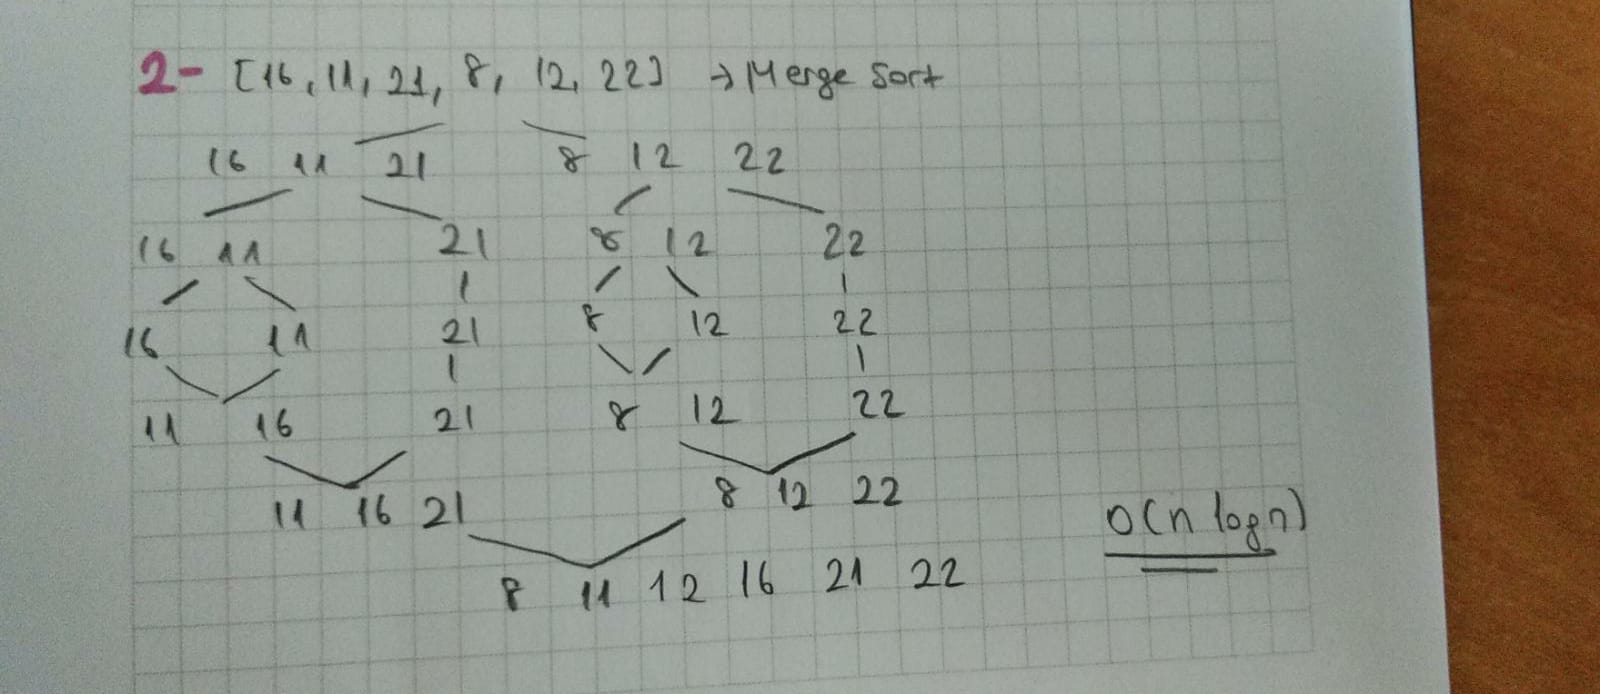 2- [16, 11, 21, 8, 12, 22] → Merge Sort
16 11 21 8 12 22
16 11 21 8 12 22
16 11 21 8 12 22
11 16 21 8 12 22
11 16 21 8 12 22
O(n log n)
8 11 12 16 21 22